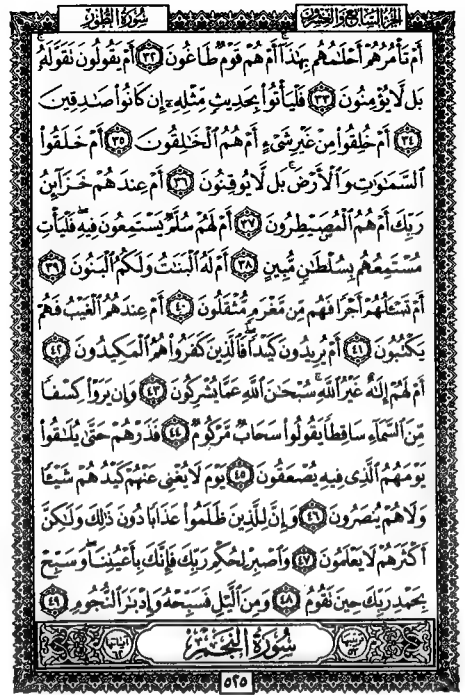 سُورَةُ الطُّورِ
الجزء السابع والعشرون
أَمْ تَأْمُرُهُمْ أَحْلَٰمُهُم بِهَٰذَآ أَمْ هُمْ قَوْمٌ طَاغُونَ ٣٢ أَمْ يَقُولُونَ تَقَوَّلَهُۥ
بَل لَّا يُؤْمِنُونَ ٣٣ فَلْيَأْتُوا۟ بِحَدِيثٍ مِّثْلِهِۦٓ إِن كَانُوا۟ صَٰدِقِينَ
٣٤ أَمْ خُلِقُوا۟ مِنْ غَيْرِ شَىْءٍ أَمْ هُمُ ٱلْخَٰلِقُونَ ٣٥ أَمْ خَلَقُوا۟
ٱلسَّمَٰوَٰتِ وَٱلْأَرْضَ ۚ بَل لَّا يُوقِنُونَ ٣٦ أَمْ عِندَهُمْ خَزَآئِنُ
رَبِّكَ أَمْ هُمُ ٱلْمُصَۣيْطِرُونَ ٣٧ أَمْ لَهُمْ سُلَّمٌ يَسْتَمِعُونَ فِيهِ ۖ فَلْيَأْتِ
مُسْتَمِعُهُم بِسُلْطَٰنٍ مُّبِينٍ ٣٨ أَمْ لَهُ ٱلْبَنَٰتُ وَلَكُمُ ٱلْبَنُونَ ٣٩
أَمْ تَسْـَٔلُهُمْ أَجْرًا فَهُم مِّن مَّغْرَمٍ مُّثْقَلُونَ ٤٠ أَمْ عِندَهُمُ ٱلْغَيْبُ فَهُمْ
يَكْتُبُونَ ٤١ أَمْ يُرِيدُونَ كَيْدًا ۖ فَٱلَّذِينَ كَفَرُوا۟ هُمُ ٱلْمَكِيدُونَ ٤٢
أَمْ لَهُمْ إِلَٰهٌ غَيْرُ ٱللَّهِ ۚ سُبْحَٰنَ ٱللَّهِ عَمَّا يُشْرِكُونَ ٤٣ وَإِن يَرَوْا۟ كِسْفًا
مِّنَ ٱلسَّمَآءِ سَاقِطًا يَقُولُوا۟ سَحَابٌ مَّرْكُومٌ ٤٤ فَذَرْهُمْ حَتَّىٰ يُلَٰقُوا۟
يَوْمَهُمُ ٱلَّذِى فِيهِ يُصْعَقُونَ ٤٥ يَوْمَ لَا يُغْنِى عَنْهُمْ كَيْدُهُمْ شَيْـًٔا
وَلَا هُمْ يُنصَرُونَ ٤٦ وَإِنَّ لِلَّذِينَ ظَلَمُوا۟ عَذَابًا دُونَ ذَٰلِكَ وَلَٰكِنَّ
أَكْثَرَهُمْ لَا يَعْلَمُونَ ٤٧ وَٱصْبِرْ لِحُكْمِ رَبِّكَ فَإِنَّكَ بِأَعْيُنِنَا ۖ وَسَبِّحْ
بِحَمْدِ رَبِّكَ حِينَ تَقُومُ ٤٨ وَمِنَ ٱلَّيْلِ فَسَبِّحْهُ وَإِدْبَٰرَ ٱلنُّجُومِ ٤٩
ترتيبها ٥٣ سُورَةُ النَّجْمِ آياتها ٦٢
٥٢٥